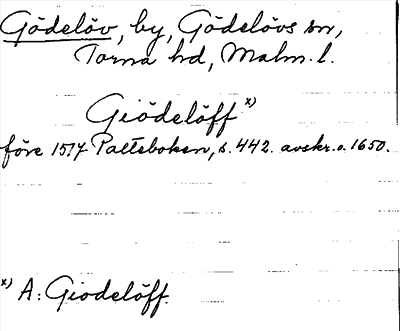 Gödelöv, by, Gödelövs sn,
Torna hd, Malm. l.
Giödelöff x)
före 1517 Palteboken, s. 442. avskr. o. 1650.
x) A: Giodelöff.